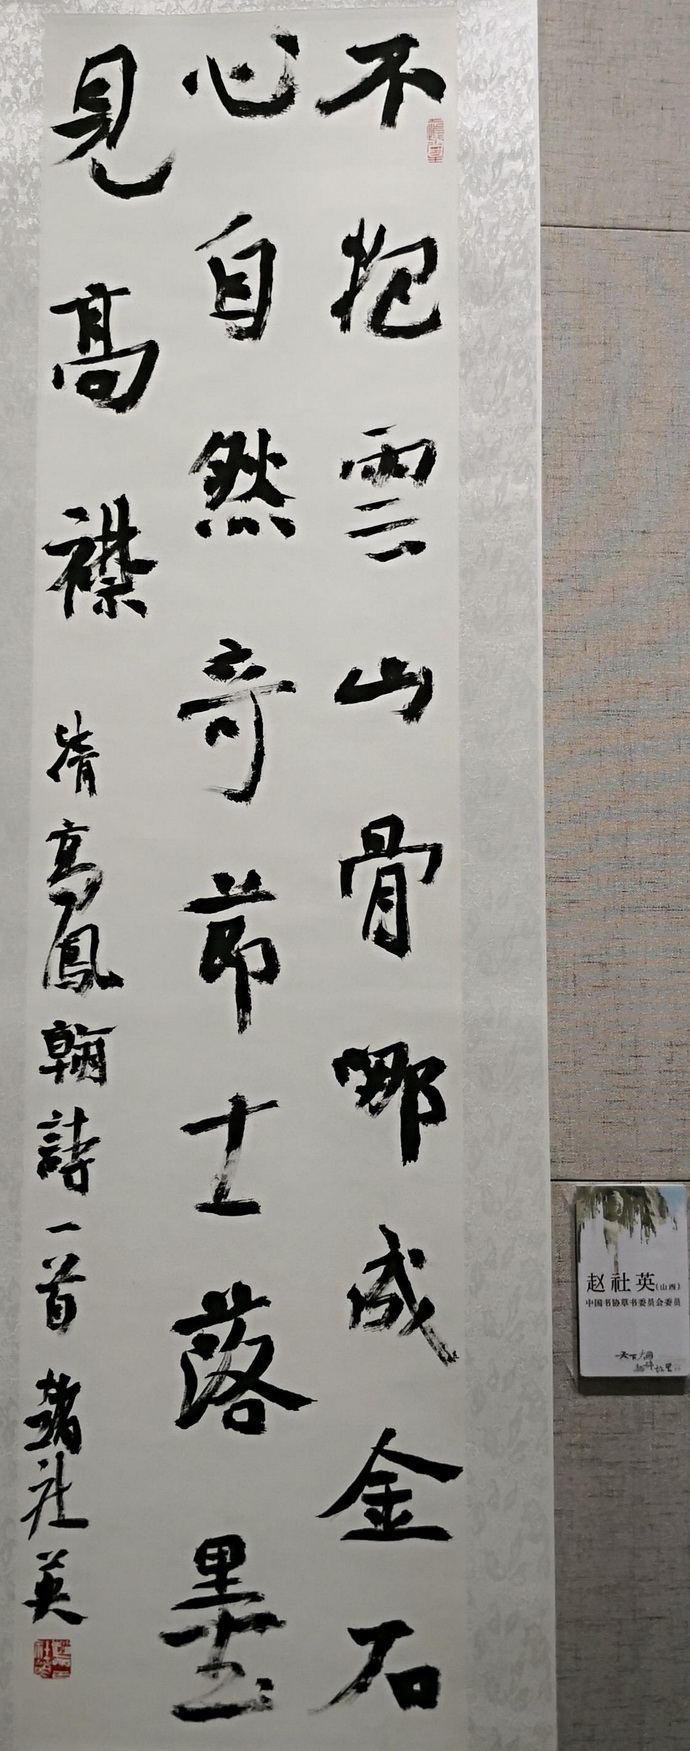 不犯雲山骨哪成金石
心自然奇節士落墨
見高襟
清高鳳翰詩一首 趙社英
赵社英(山西)
中国书协草书委员会委员